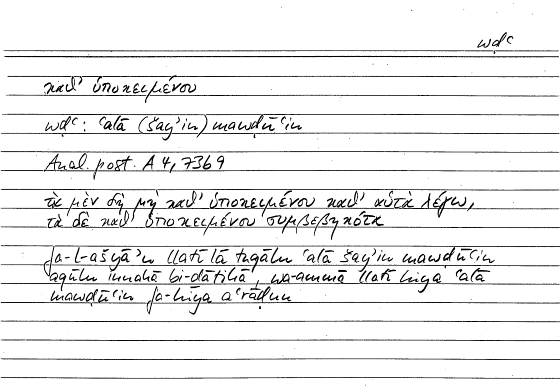 wḍʿ
καθ' ὑποκειμένου
wḍʿ : ʿalā (šayʾin) mawḍūʿin
Anal. post. A 4, 73b9
τὰ μὲν δὴ μὴ καθ' ὑποκειμένου καθ' αὑτὰ λέγω,
τὰ δὲ καθ' ὑποκειμένου συμβεβηκότα
fa-l-ašyāʾu llatī lā tuqālu ʿalā šayʾin mawḍūʿin
aqūlu innahā bi-ḏātihā, wa-ammā llatī hiya ʿalā
mawḍūʿin fa-hiya aʿrāḍun